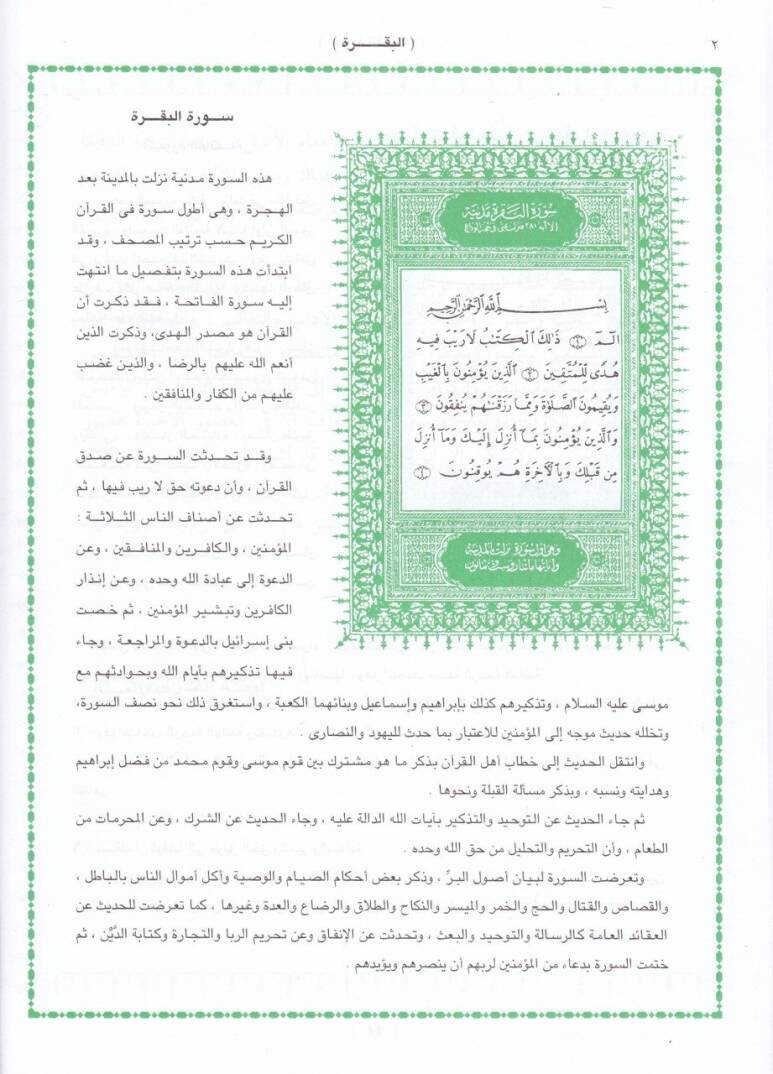 ٢
( البقـــــرة )
ســورة البقــرة
هذه السورة مدنية نزلت بالمدينة بعد
الهـجـرة ، وهى أطول سورة فى القرآن
الكريم حسب ترتيب المصحف ، وقد
ابتدأت هذه السورة بتفصيل ما انتهت
إليـه سـورة الفـاتحـة ، فـقـد ذكـرت أن
القرآن هو مصدر الهدى، وذكرت الذين
أنعم الله عليهم بالرضا ، والذين غضب
عليهم من الكفار والمنافقين .
وقـد تحـدثت السـورة عن صـدق
القرآن ، وأن دعوته حق لا ريب فيها ، ثم
تحـدثت عن أصناف الناس الثـلاثـة :
المؤمنين ، والكافرين والمنافقـين ، وعن
الدعوة إلى عبادة الله وحده ، وعـن إنـذار
الكافرين وتبـشير المؤمنين ، ثم خـصت
بنى إسرائيل بالدعوة والمراجعة ، وجاء
فيـهـا تذكيرهم بأيام الله وبحـوادثهـم مع
موسى عليه السلام ، وتذكيرهم كذلك بإبراهيم وإسماعيل وبنائهما الكعبة ، واستغرق ذلك نحو نصف السورة،
وتخلله حديث موجه إلى المؤمنين للاعتبار بما حدث لليهود والنصارى .
وانتقل الحديث إلى خطاب أهل القرآن بذكر ما هو مشترك بين قوم موسى وقوم محمد من فضل إبراهيم
وهدايته ونسبه ، وبذكر مسألة القبلة ونحوها .
ثم جاء الحديث عن التوحيد والتذكير بآيات الله الدالة عليه ، وجاء الحديث عن الشرك ، وعن المحرمات من
الطعام ، وأن التحريم والتحليل من حق الله وحده .
وتعرضت السورة لبيان أصول البرِّ ، وذكر بعض أحكام الصيام والوصية وأكل أموال الناس بالباطل ،
والقصاص والقتال والحج والخمر والميسر والنكاح والطلاق والرضاع والعدة وغيرها ، كما تعرضت للحديث عن
العقائد العامة كالرسالة والتوحيد والبعث ، وتحدثت عن الإنفاق وعن تحريم الربا والتجارة وكتابة الدَّيْن ، ثم
ختمت السورة بدعاء من المؤمنين لربهم أن ينصرهم ويؤيدهم .
سُورَةُ البَقَرَةِ مَدَنِيَّة
بِسْمِ ٱللَّهِ ٱلرَّحْمَٰنِ ٱلرَّحِيمِ
الٓمٓ ۝١ ذَٰلِكَ ٱلْكِتَٰبُ لَا رَيْبَ فِيهِ
هُدًى لِّلْمُتَّقِينَ ۝٢ ٱلَّذِينَ يُؤْمِنُونَ بِٱلْغَيْبِ
وَيُقِيمُونَ ٱلصَّلَوٰةَ وَمِمَّا رَزَقْنَٰهُمْ يُنفِقُونَ ۝٣
وَٱلَّذِينَ يُؤْمِنُونَ بِمَآ أُنزِلَ إِلَيْكَ وَمَآ أُنزِلَ
مِن قَبْلِكَ وَبِٱلْءَاخِرَةِ هُمْ يُوقِنُونَ ۝٤